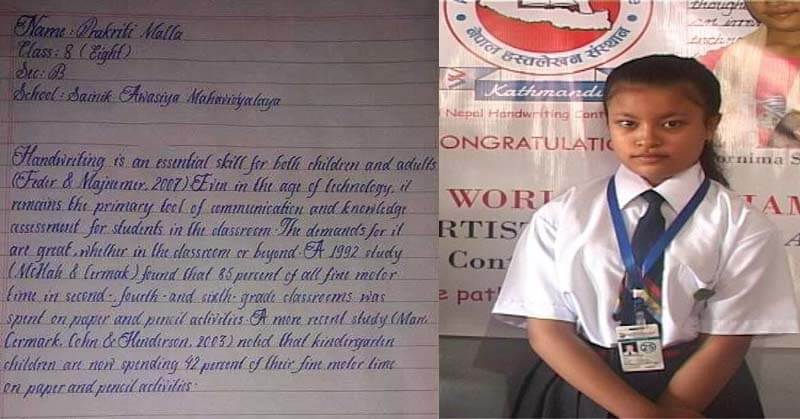 Name : Prakriti Malla
Class : 8 (Eight)
Sec : B
School : Sainik Awasiya Mahavidyalaya
Handwriting is an essential skill for both children and adults
(Feder & Majnemer, 2007) Even in the age of technology, it
remains the primary tool of communication and knowledge
assessment for students in the classroom. The demands for it
are great, whether in the classroom or beyond. A 1992 study
(McHale & Cermak) found that 85 percent of all fine motor
time in second-, fourth- and sixth- grade classrooms was
spent on paper and pencil activities. A more recent study (Marr,
Cermark, Cohn & Henderson, 2003) noted that kindergarten
children are now spending 42 percent of their fine motor time
on paper and pencil activities.
नेपाल हस्तलेखन संस्थान
Kathmandu
Nepal Handwriting Cont
ONGRATULATIO
ornima S
WOR
ARTIST
Con
e pat